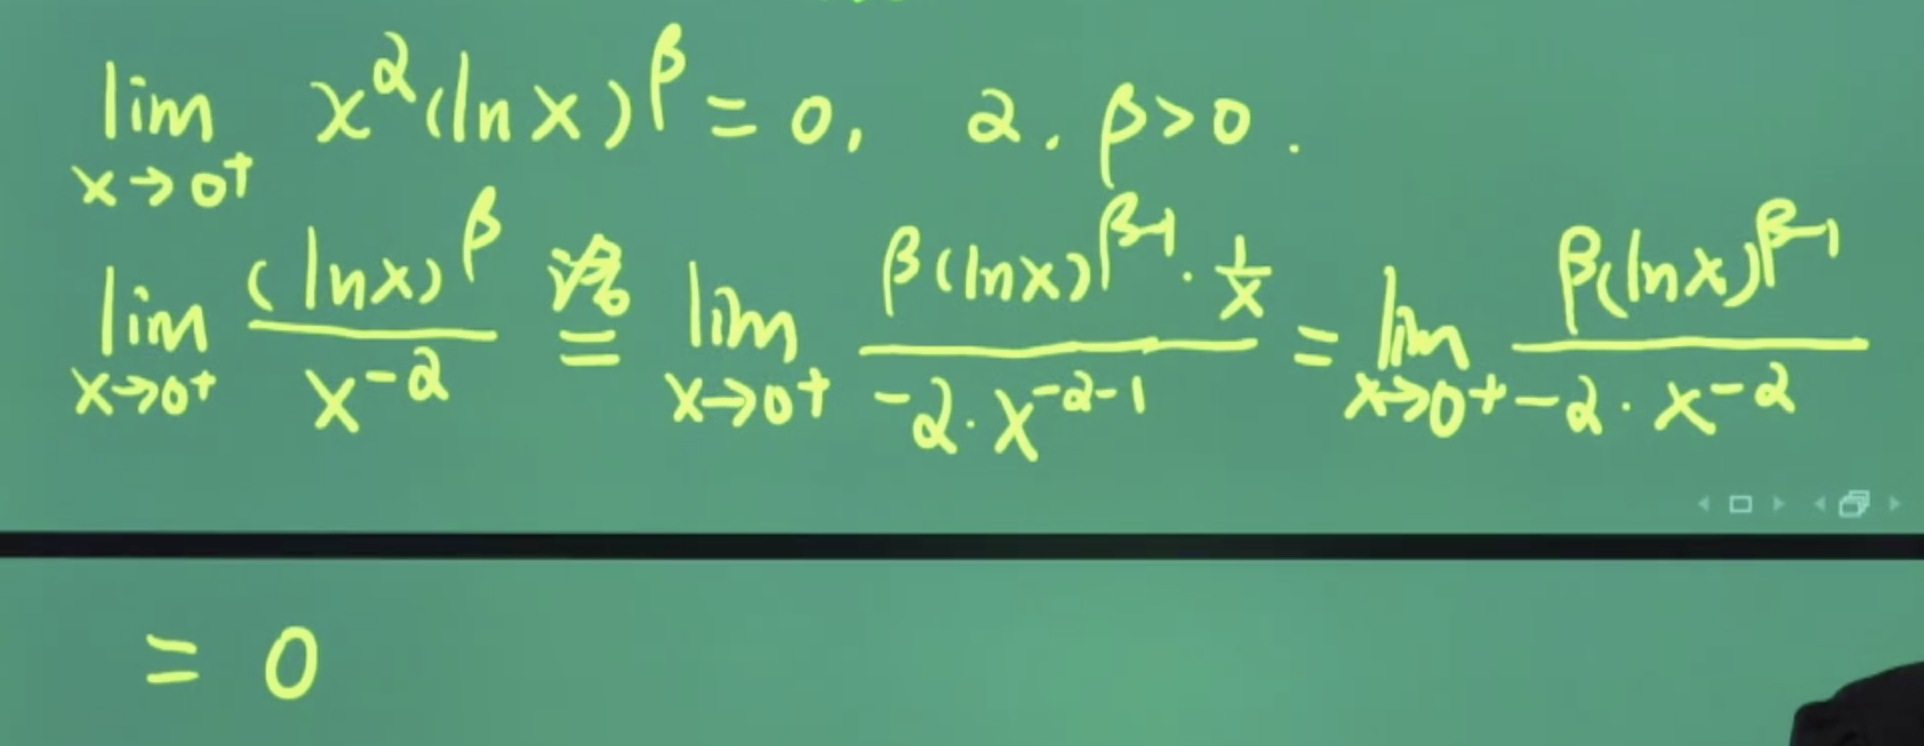 lim x→0⁺ x^α (ln x)^β = 0, α, β>0.
lim x→0⁺ (ln x)^β / x^(-α) 洛= lim x→0⁺ β(ln x)^(β-1) · 1/x / -α · x^(-α-1) = lim x→0⁺ β(ln x)^(β-1) / -α · x^(-α)
= 0